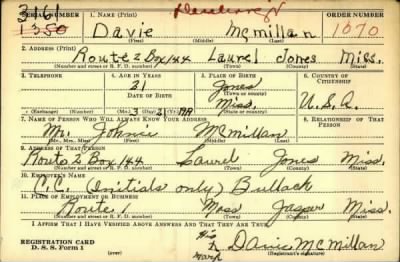 3161
SERIAL NUMBER 1. NAME (Print) ORDER NUMBER
1350 Davie McMillan 1070
(First) (Middle) (Last)
2. ADDRESS (Print)
Route 2 Box 144 Laurel Jones Miss.
(Number and street or R. F. D. number) (Town) (County) (State)
3. TELEPHONE 4. AGE IN YEARS 5. PLACE OF BIRTH 6. COUNTRY OF CITIZENSHIP
21 Jones
DATE OF BIRTH (Town or county)
Miss. U.S.A.
(Exchange) (Number) (Mo.) (Day) (Yr.) (State or country)
7. NAME OF PERSON WHO WILL ALWAYS KNOW YOUR ADDRESS 8. RELATIONSHIP OF THAT PERSON
Mr. Johnie McMillan
(Mr., Mrs., Miss) (First) (Middle) (Last)
9. ADDRESS OF THAT PERSON
Route 2 Box 144 Laurel Jones Miss.
(Number and street or R. F. D. number) (Town) (County) (State)
10. EMPLOYER'S NAME
C.C. (initials only) Bullock
11. PLACE OF EMPLOYMENT OR BUSINESS
Route 1 Moss Jasper Miss.
(Number and street or R. F. D. number) (Town) (County) (State)
I AFFIRM THAT I HAVE VERIFIED ABOVE ANSWERS AND THAT THEY ARE TRUE.
REGISTRATION CARD his
D. S. S. Form 1 X Davie McMillan
(over) mark (Registrant's signature)